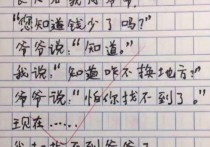 “您知道钱少了吗？”
爷爷说，“知道。”
我说，“知道咋不换地方？”
爷爷说，“怕你找不到了。”
现在……
找不到爷爷了